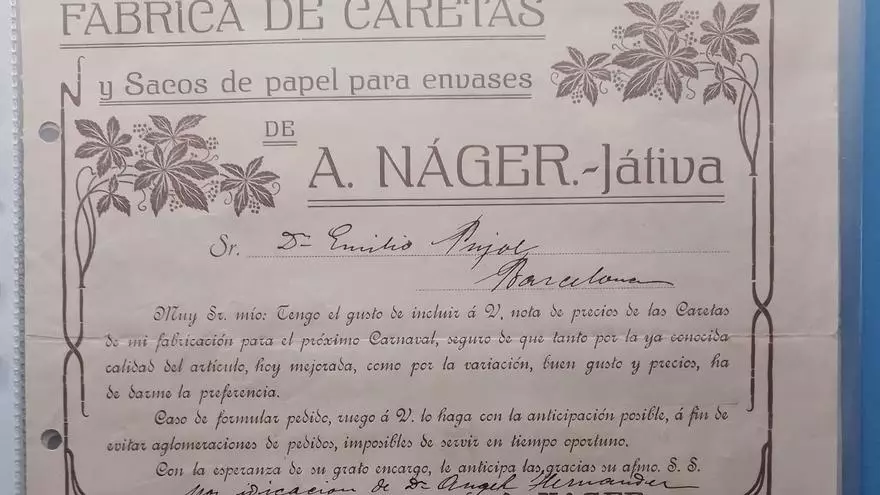 FÁBRICA DE CARETAS
y Sacos de papel para envases
DE
A. NÁGER.-Játiva
Sr. Dn Emilio Pujol
Barcelona
Muy Sr. mío: Tengo el gusto de incluir á V. nota de precios de las Caretas
de mi fabricación para el próximo Carnaval, seguro de que tanto por la ya conocida
calidad del artículo, hoy mejorada, como por la variación, buen gusto y precios, ha
de darme la preferencia.
Caso de formular pedido, ruego á V. lo haga con la anticipación posible, á fin de
evitar aglomeraciones de pedidos, imposibles de servir en tiempo oportuno.
Con la esperanza de su grato encargo, le anticipa las gracias su afmo. S. S.
por idicacion de Dn Angel Hernander
NAGER